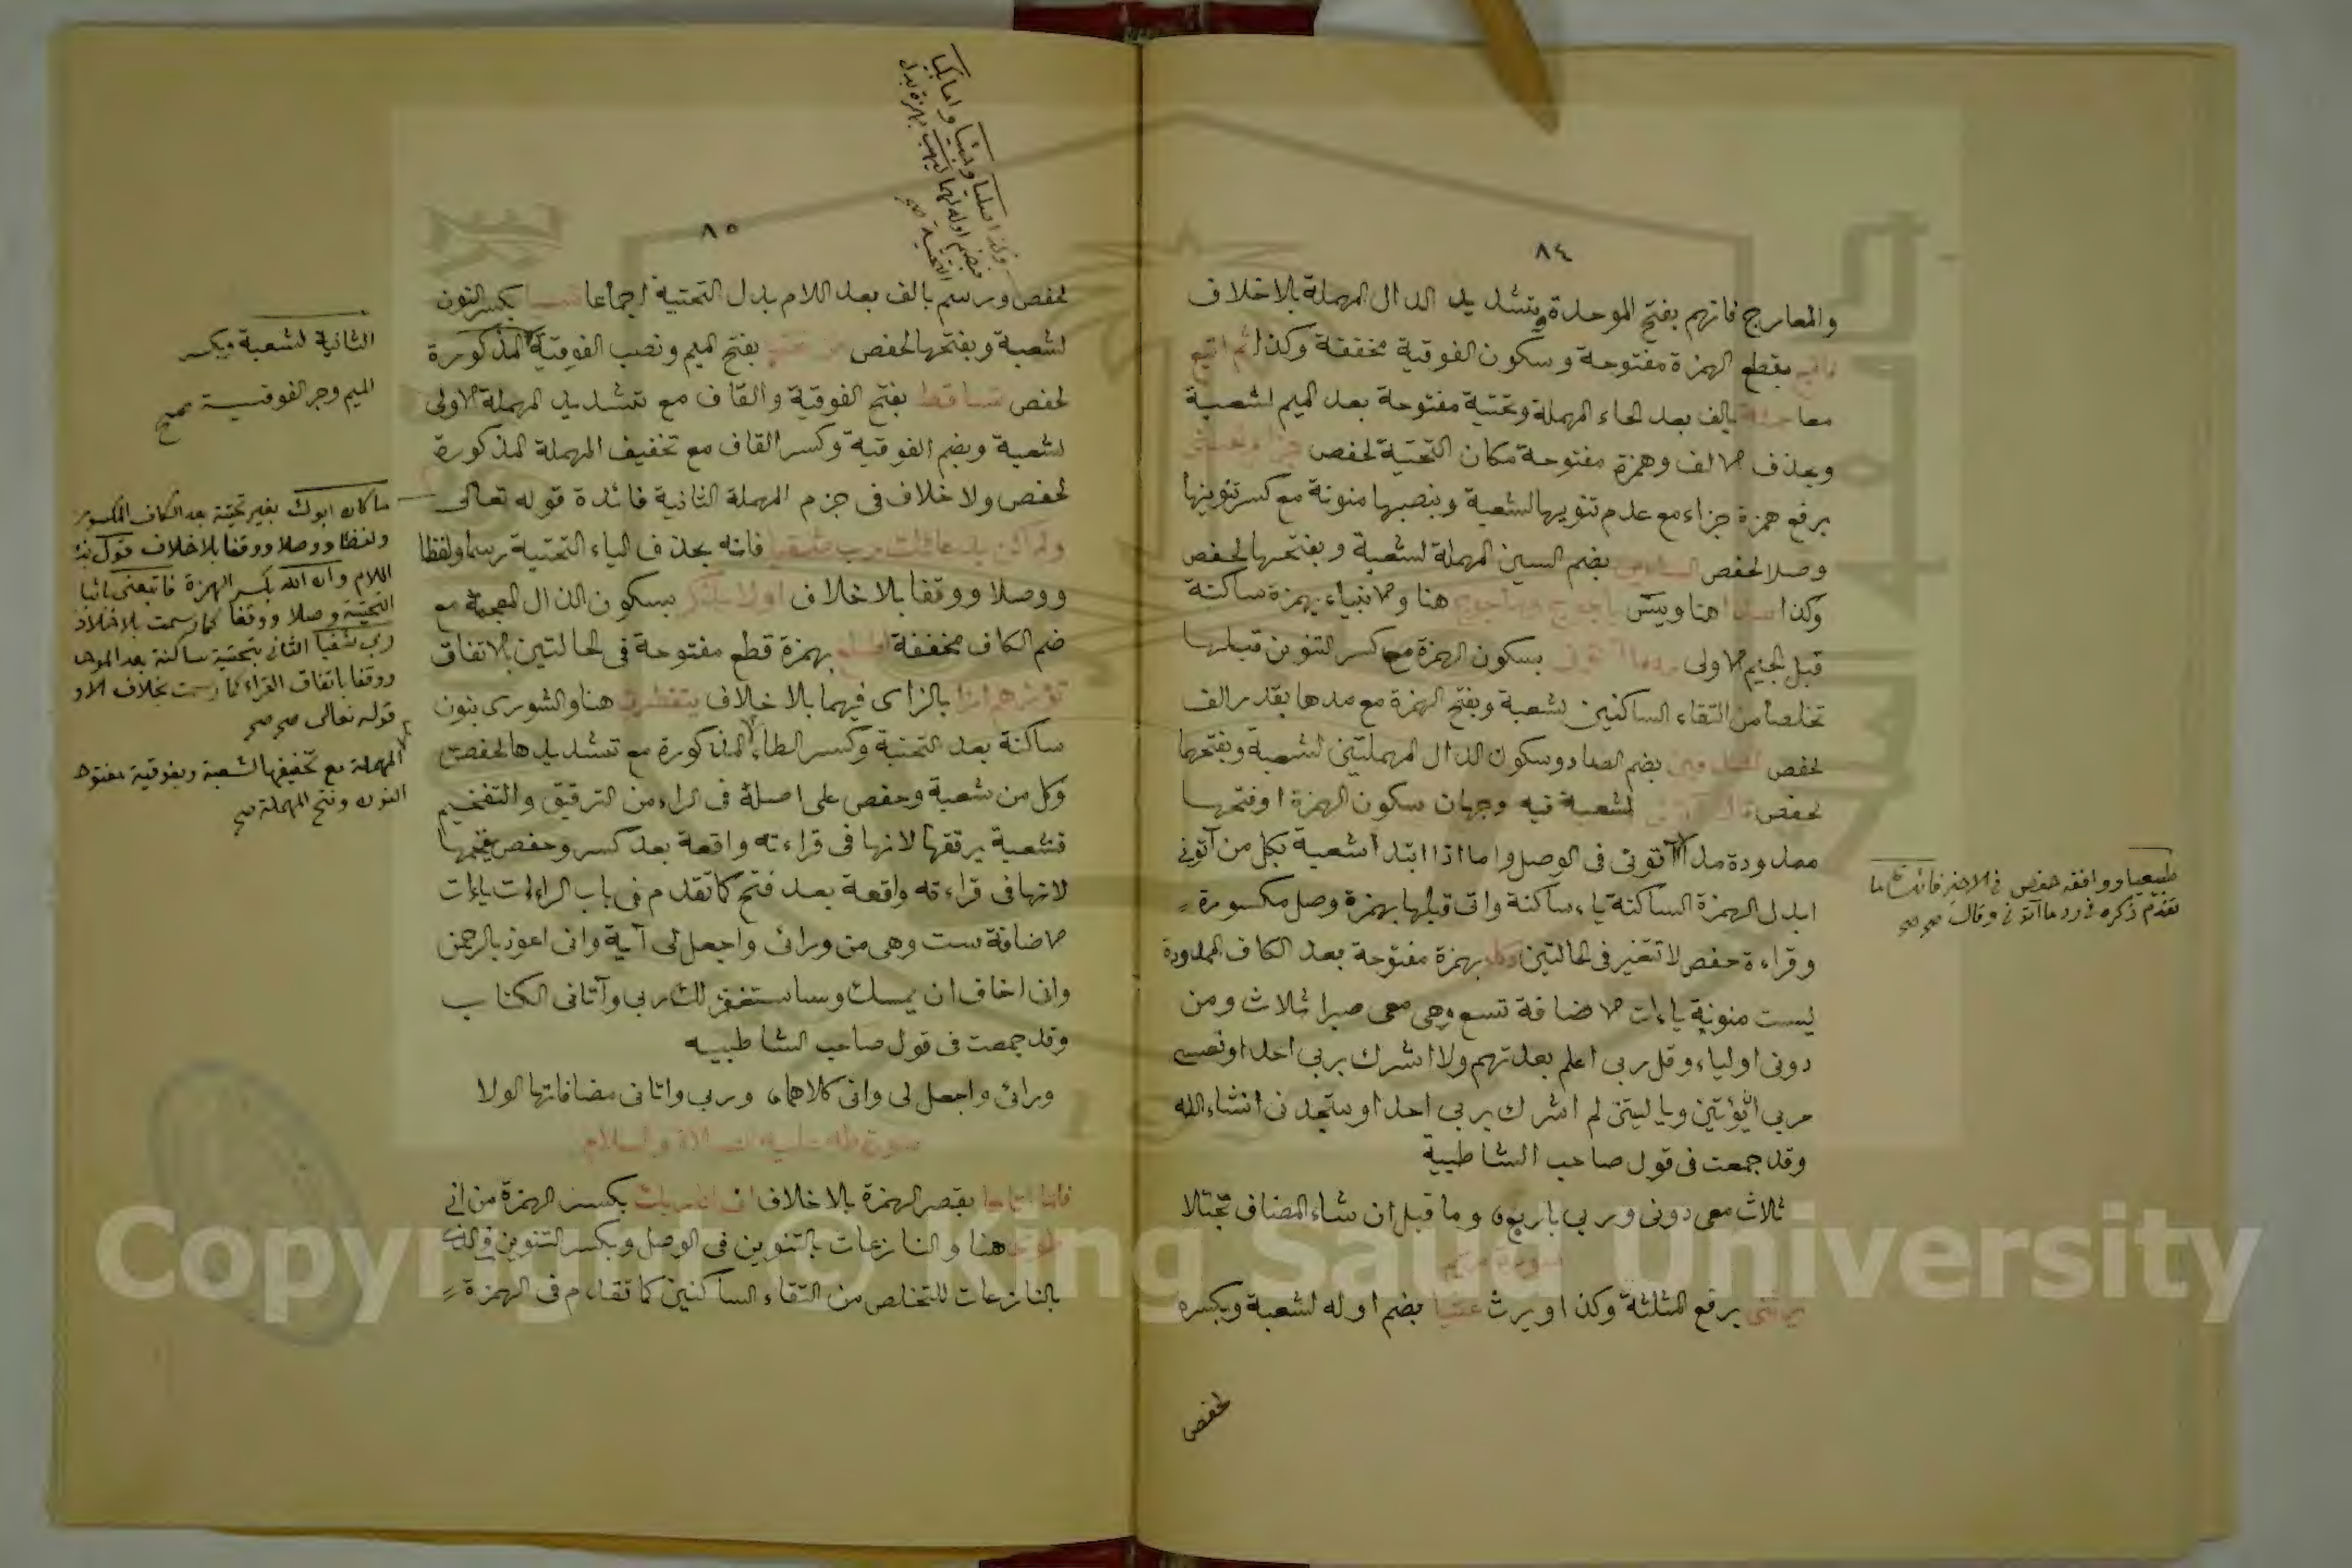 ٨٤
والمعارج فانهم بفتح الموحدة وبتشديد الدال المهملة بلاخلاف
فاتبع بقطع الهمزة مفتوحة وسكون الفوقية مخففة وكذا ثم اتبع
معا حمئة بالف بعد الحاء المهملة وتحتية مفتوحة بعد الميم لشعبة
وبحذف الالف وهمزة مفتوحة مكان التحتية لحفص جزاء الحسنى
برفع همزة جزاء مع عدم تنوينها لشعبة وبنصبها منونة مع كسر تنوينها
وصلا لحفص السدين بضم السين المهملة لشعبة وبفتحها لحفص
وكذا سدا هنا ويس ياجوج وماجوج هنا والانبياء بهمزة ساكنة
قبل الجيم الاولى ردما آتوني بسكون الهمزة مع كسر التنوين قبلها
تخلصا من التقاء الساكنين لشعبة وبفتح الهمزة مع مدها بقدر الف
لحفص الصدفين بضم الصاد وسكون الدال المهملتين لشعبة وبفتحهما
لحفص قال آتوني لشعبة فيه وجهان سكون الهمزة او فتحها
ممدودة مدا في الوصل واما اذا ابتدأ شعبة بكل من آتوني
ابدل الهمزة الساكنة ياء ساكنة واتى قبلها بهمزة وصل مكسورة
وقراءة حفص لا تتغير في الحالتين دكاء بهمزة مفتوحة بعد الكاف الممدودة
ليست منونة ياءات الاضافة تسع وهي معي صبرا ثلاث ومن
دوني اولياء وقل ربي اعلم بعدتهم ولا اشرك بربي احدا وفعسى
ربي ان يؤتين ويا ليتني لم اشرك بربي احدا وستجدني انشاء الله
وقد جمعت في قول صاحب الشاطبية
ثلاث معي دوني وربي باربع وما قبل ان شاء المضاف تجتلا
سورة مريم
يرثني برفع المثلثة وكذا ويرث عتيا بضم اوله لشعبة وبكسره
لحفص
طبيعيا ووافقه حفص في الاخير فاثبت ما
تقدم ذكره في ردما آتوني وقال صح صح
٨٥
وكذا صليا وجثيا واما بكيا
فبضم اوله لهما ليهب بهمزة بدل
التحتية صح
لحفص ورسم بالف بعد اللام بدل التحتية اجماعا نسيا بكسر النون
لشعبة وبفتحها لحفص من تحتها بفتح الميم ونصب الفوقية المذكورة
لحفص تساقط بفتح الفوقية والقاف مع تشديد المهملة الاولى
لشعبة وبضم الفوقية وكسر القاف مع تخفيف المهملة المذكورة
لحفص ولا خلاف في جزم المهملة الثانية فائدة قوله تعالى
ولم اكن بدعائك رب شقيا فانه بحذف الياء التحتية رسما ولفظا
ووصلا ووقفا بلا خلاف اولا يذكر بسكون الذال المعجمة مع
ضم الكاف مخففة اطلع بهمزة قطع مفتوحة في الحالتين بالاتفاق
تؤزهم ازا بالزاى فيهما بلا خلاف يتفطرن هنا والشورى بنون
ساكنة بعد التحتية وكسر الطاء المذكورة مع تشديدها لحفص
وكل من شعبة وحفص على اصله في الراء من الترقيق والتفخيم
فشعبة يرققها لانها في قراءته واقعة بعد كسر وحفص يفخمها
لانها في قراءته واقعة بعد فتح كما تقدم في باب الراءات ياءات
الاضافة ست وهي من ورائى واجعل لى آية وانى اعوذ بالرحمن
وانى اخاف ان يمسك وساستغفر لك ربي وآتانى الكتاب
وقد جمعت في قول صاحب الشاطبيه
ورائى واجعل لى وانى كلاهما وربى واتانى مضافاتها الولا
سورة طه عليه الصلاة والسلام
فلما اتاها بقصر الهمزة بلا خلاف انى انا ربك بكسر الهمزة من اني
طوى هنا والنازعات بالتنوين في الوصل وبكسر التنوين
بالنازعات للتخلص من التقاء الساكنين كما تقدم في الهمزة
الثانية لشعبة وبكسر
الميم وجر الفوقية صحيح
ما كان ابوك بغير تحتية بعد الكاف المكسورة
ولفظا ووصلا ووقفا بلاخلاف
اللام وان الله بكسر الهمزة فاتبعني باثبات
التحتية وصلا ووقفا كما رسمت بلاخلاف
ربي شقيا الثاني بتحتية ساكنة بعد الموحدة
ووقفا باتفاق القراء كما رسمت بخلاف الاول
قوله تعالى صح صح
المهملة مع تخفيفها لشعبة وبفوقية مفتوحة
النون وفتح المهملة صح
Copyright © King Saud University